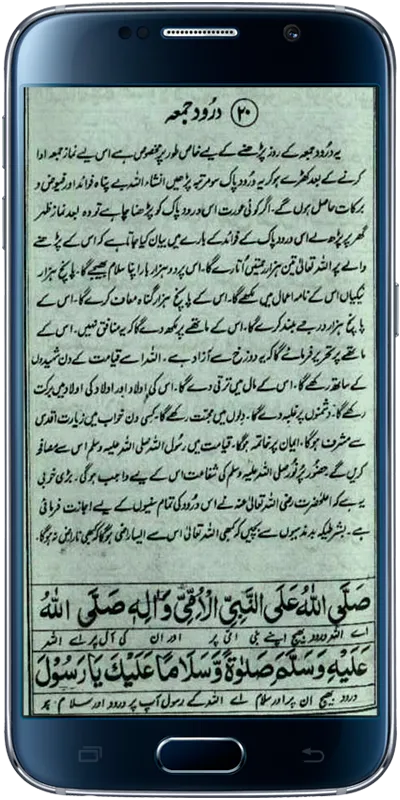 ۲۰ درود جمعہ
یہ درود جمعہ کے روز پڑھنے کے لیے خاص طور پر مخصوص ہے اس لیے نماز جمعہ ادا
کرنے کے بعد کھڑے ہو کر یہ درود پاک سو مرتبہ پڑھیں انشاء اللہ بے پناہ فوائد اور فیوض و
برکات حاصل ہوں گے۔ اگر کوئی عورت اس درود پاک کو پڑھنا چاہے تو وہ بعد نماز ظہر
گھر پر پڑھ لے اس درود پاک کے فوائد کے بارے میں بیان کیا جاتا ہے کہ اس کے پڑھنے
والے پر اللہ تعالیٰ تین ہزار رحمتیں اُتارے گا۔ اس پر دو ہزار بار اپنا سلام بھیجے گا۔ پانچ ہزار
نیکیاں اس کے نامہ اعمال میں لکھے گا۔ اس کے پانچ ہزار گناہ معاف کرے گا۔ اس کے
پانچ ہزار درجے بلند کرے گا۔ اس کے ماتھے پر لکھ دے گا کہ یہ منافق نہیں۔ اس کے
ماتھے پر تحریر فرمائے گا کہ یہ دوزخ سے آزاد ہے۔ اللہ اسے قیامت کے دن شہیدوں
کے ساتھ رکھے گا۔ اس کے مال میں ترقی دے گا۔ اس کی اولاد اور اولاد کی اولاد میں برکت
رکھے گا۔ دشمنوں پر غلبہ دے گا۔ دلوں میں محبت رکھے گا۔ کسی دن خواب میں زیارت اقدس
سے مشرف ہوگا۔ ایمان پر خاتمہ ہوگا۔ قیامت میں رسول اللہ صلی اللہ علیہ وسلم اس سے مصافحہ
کریں گے۔ حضور پُر نور صلی اللہ علیہ وسلم کی شفاعت اس کے لیے واجب ہوگی۔ بڑی خوبی
یہ ہے کہ اعلیٰحضرت رضی اللہ تعالیٰ عنہ نے اس درود کی تمام سنیوں کے لیے اجازت فرمائی
ہے۔ بشرطیکہ بدمذہبوں سے بچیں کہ کبھی اللہ تعالیٰ اس سے ایسا راضی ہوگا کہ کبھی ناراض نہ ہوگا۔
صَلَّى اللهُ عَلَى النَّبِيِّ الْأُمِّيِّ وَاٰلِهٖ صَلَّى اللهُ
اے اللہ درود بھیج اپنے نبی امی پر اور ان کی آل پر اے اللہ
عَلَيْهِ وَسَلَّمَ صَلٰوةً وَّسَلَامًا عَلَيْكَ يَا رَسُوْلَ
درود بھیج ان پر اور سلام اے اللہ کے رسول آپ پر درود اور سلام ہو